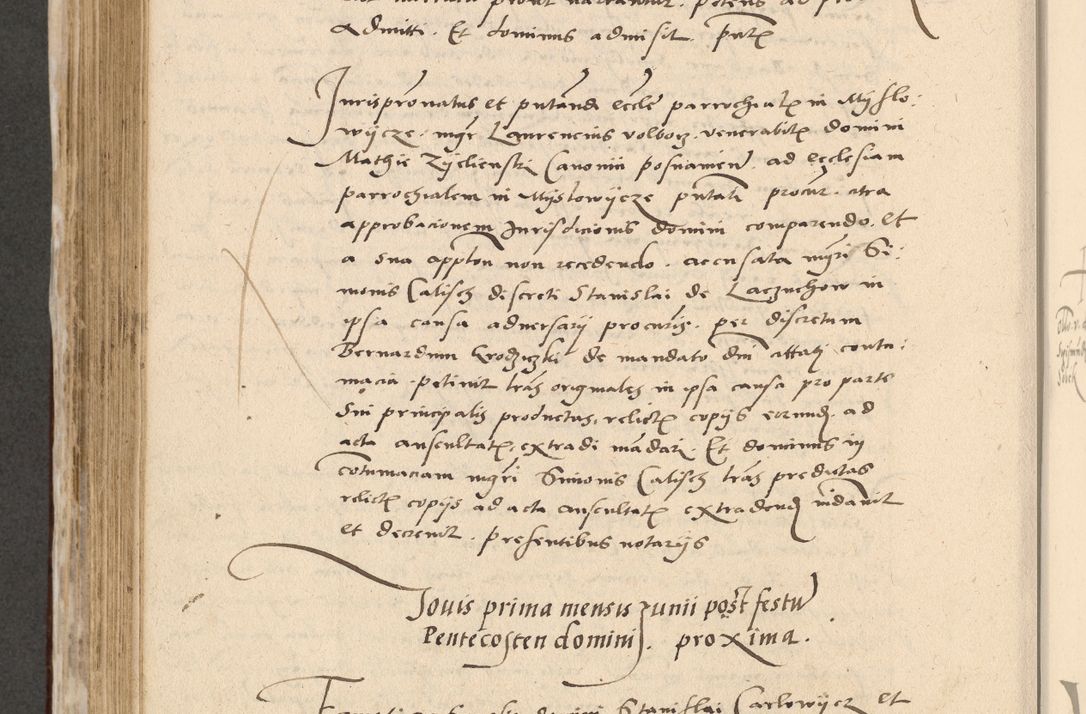 admitti. Et dominus admisit. pntz
Jurispronatus et pntand eccle parrochialz in Mijslo:
wijcze. mgr Laurencius volborz. venerabilz domini
Mathie Zijelienski Canonici posnanien. ad ecclesiam
parrochialem in Mijslowijcze pntati procur. citra
approbacionem Jurisdicionis domini comparendo. et
a sua appton non recedendo. accusata mgri Si:
monis Calisch discreti Stanislai de Laczuchow in
ipsa causa adversarij procuris. per discretum
Bernardum Krodziczki de mandato dni attati contu:
macia. petivit lras originales in ipsa causa pro parte
sui principalis productas, relictz copijs eorund. ad
acta auscultatz, extradi mandari. Et dominus in
cotumaciam mgri Simonis Calisch lras predictas
relictz copijs ad acta auscultatz extradend mdavit
et decrevit. presentibus notarijs
Jovis prima mensis Junii post festu
Pentecosten domini. proxima.
Stanislai Carlowijcz et